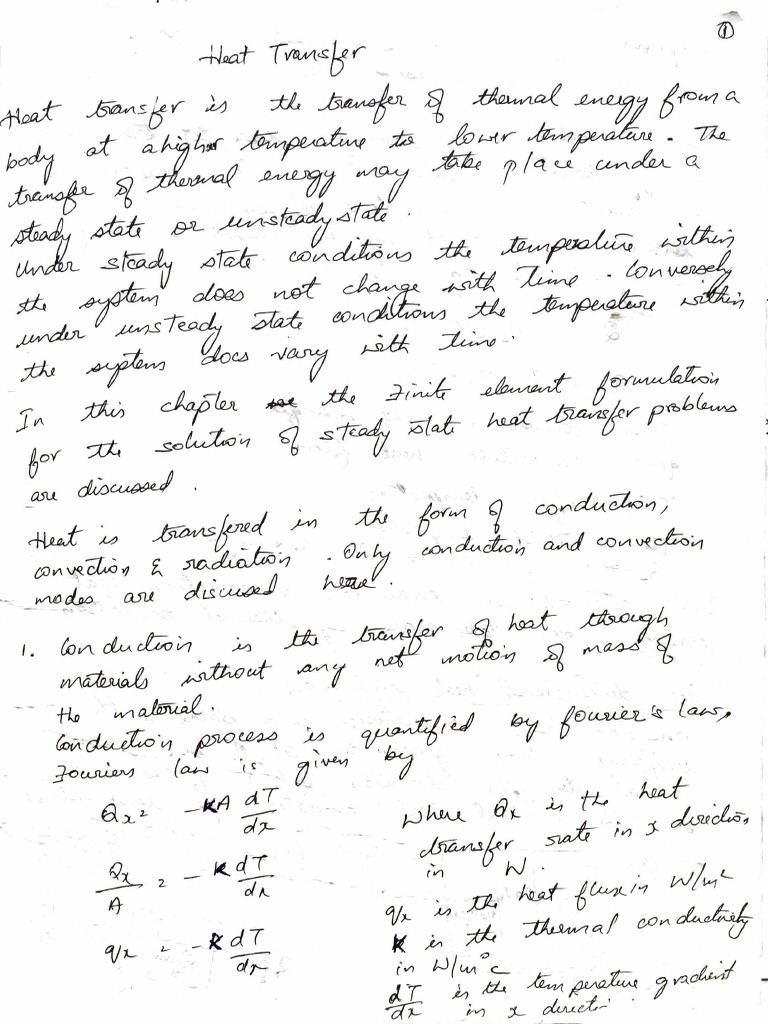 ①
Heat Transfer
Heat transfer is the transfer of thermal energy from a
body at a higher temperature to lower temperature. The
transfer of thermal energy may take place under a
steady state or unsteady state.
Under steady state conditions the temperature within
the system does not change with Time. Conversely
under unsteady state conditions the temperature within
the system does vary with time.
In this chapter the Finite element formulation
for the solution of steady state heat transfer problems
are discussed.
Heat is transfered in the form of conduction,
convection & radiation. Only conduction and convection
modes are discussed here.
1. Conduction is the transfer of heat through
materials without any net motion of mass of
the material.
Conduction process is quantified by fourier's law,
Fouriers law is given by
Qx = -KA dT/dx
Qx/A = -K dT/dx
qx = -K dT/dx
Where Qx is the heat
transfer rate in x direction
in W.
qx is the heat flux in W/m²
K is the thermal conductivity
in W/m°C
dT/dx is the temperature gradient
in x directi